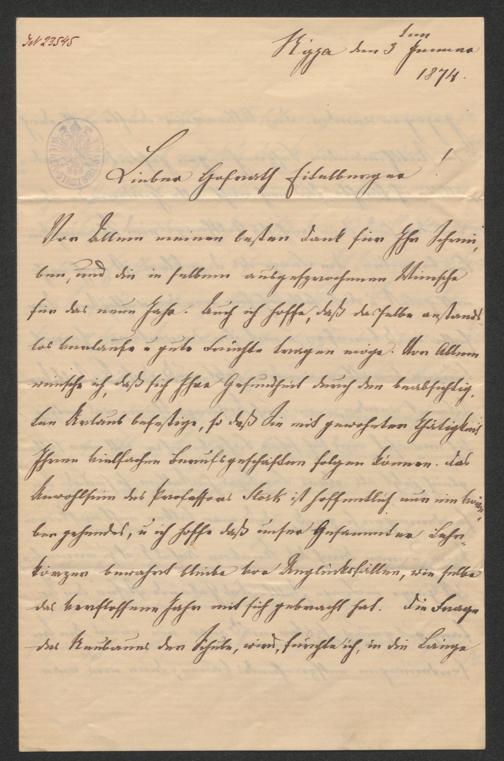 JN 23545
Nizza den 3ten Januar
1874.
Lieber Hofrath Eitelberger!
Vor Allem meinen besten Dank für Ihr Schrei-
ben, und die in selbem ausgesprochenen Wünsche
für das neue Jahr. Auch ich hoffe, daß dasselbe anstands
los verlaufe u gute Früchte tragen möge. Vor Allem
wünsche ich, daß sich Ihre Gesundheit durch den beabsichtig-
ten Urlaub befestige, so daß Sie mit gewohnter Thätigkeit
Ihren vielfachen Berufsgeschäften folgen können. Das
Unwohlsein des Professors Stork ist hoffentlich nur ein vorü-
bergehendes, u ich hoffe daß unser Gesammter Lehr-
körper bewahrt bleibe vor Unglücksfällen, wie selbe
das verflossene Jahr mit sich gebracht hat. Die Frage
des Neubaues der Schule, wird, fürchte ich, in die Länge